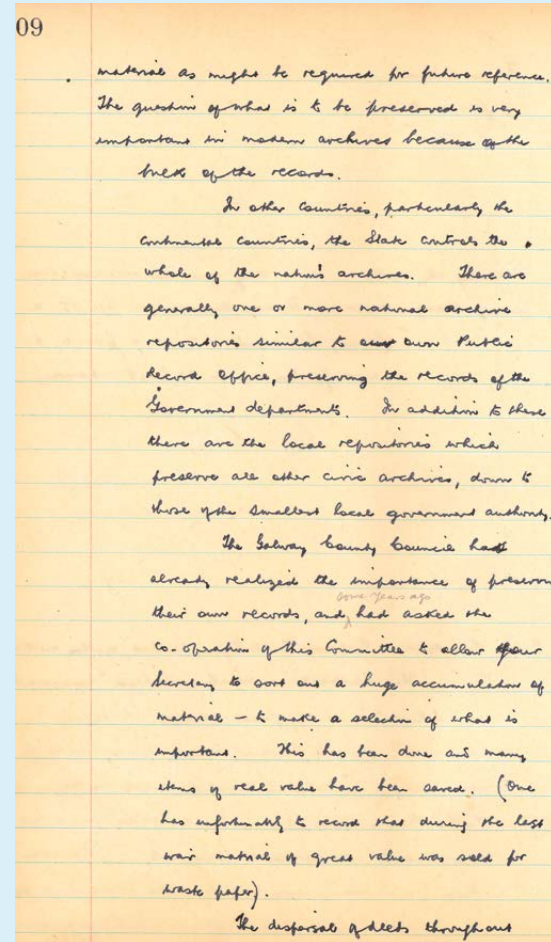 09
material as might be required for future reference.
The question of what is to be preserved is very
important in modern archives because of the
bulk of the records.
In other countries, particularly the
continental countries, the State controls the
whole of the nation's archives. There are
generally one or more national archive
repositories similar to our own Public
Record Office, preserving the records of the
Government departments. In addition to these
there are the local repositories which
preserve all other civic archives, down to
those of the smallest local government authority.
The Galway County Council had
already realized the importance of preservin
some years ago
their own records, and had asked the
co-operation of this Committee to allow your
Secretary to sort out a huge accumulation of
material – to make a selection of what is
important. This has been done and many
items of real value have been saved. (One
has unfortunately to record that during the last
war material of great value was sold for
waste paper).
The dispersal of deeds throughout